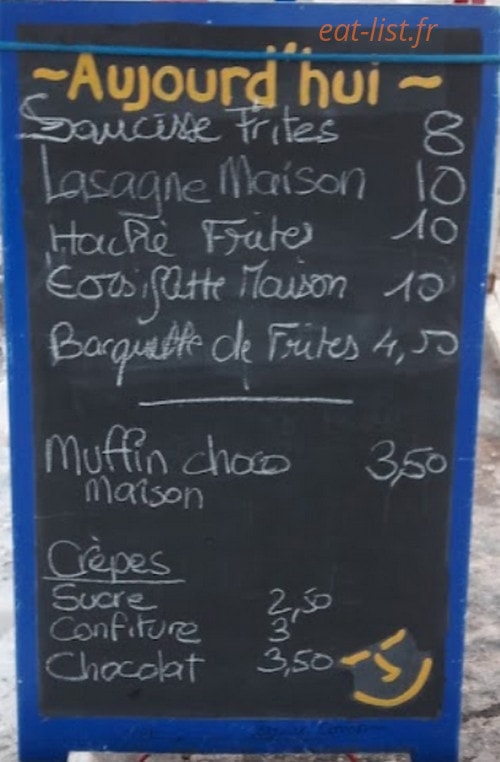 eat-list.fr
~Aujourd'hui~
Saucisse Frites 8
Lasagne Maison 10
Haché Frites 10
Maison 10
Barquette de Frites 4,50
Muffin choco 3,50
maison
Crèpes
Sucre 2,50
Confiture 3
Chocolat 3,50